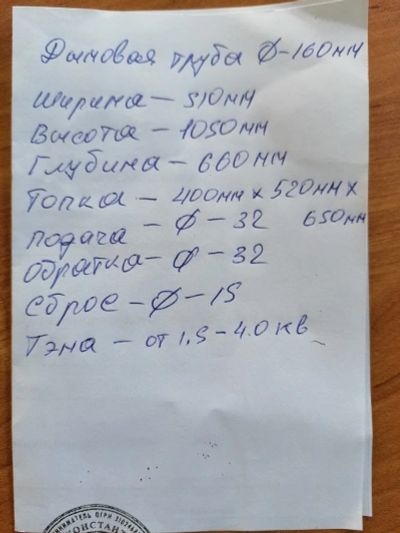 Дымовая труба Ø-160мм
Ширина — 510мм
Высота — 1050мм
Глубина — 660мм
Топка — 400мм х 520мм х
650мм
подача — Ø — 32
Обратка — Ø — 32
Сброс — Ø — 15
Тэна — от 1.5-4.0 кв
КОНСТАНТ